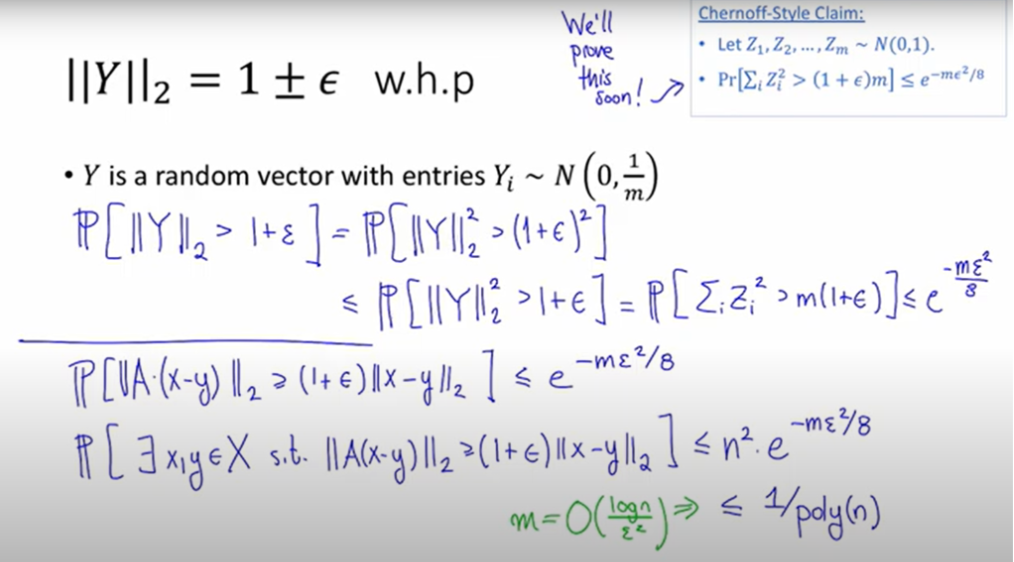 We'll
prove
this
soon!
Chernoff-Style Claim:
• Let Z₁, Z₂, ..., Zₘ ~ N(0,1).
• Pr[∑ᵢ Zᵢ² > (1 + ϵ)m] ≤ e^{-mϵ²/8}
||Y||₂ = 1 ± ϵ w.h.p
• Y is a random vector with entries Yᵢ ~ N(0, 1/m)
ℙ[‖Y‖₂ > 1+ε] = ℙ[‖Y‖₂² > (1+ϵ)²]
≤ ℙ[‖Y‖₂² > 1+ϵ] = ℙ[∑ᵢ Zᵢ² > m(1+ϵ)] ≤ e^{-mε²/8}
ℙ[‖A·(x-y)‖₂ ≥ (1+ϵ)‖x-y‖₂] ≤ e^{-mε²/8}
ℙ[∃ x,y ∈ X s.t. ‖A(x-y)‖₂ ≥ (1+ϵ)‖x-y‖₂] ≤ n²·e^{-mε²/8}
m = O(logn/ε²) ⇒ ≤ 1/poly(n)